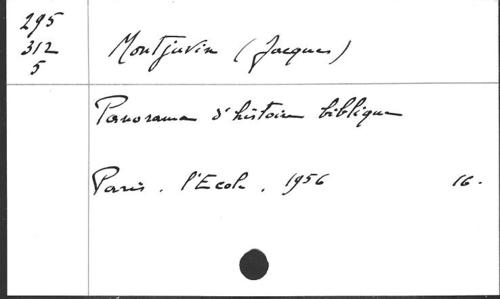 295
312
5
Montjuvin (Jacques)
Panorama d'histoire biblique
Paris. l'Ecole. 1956 16.